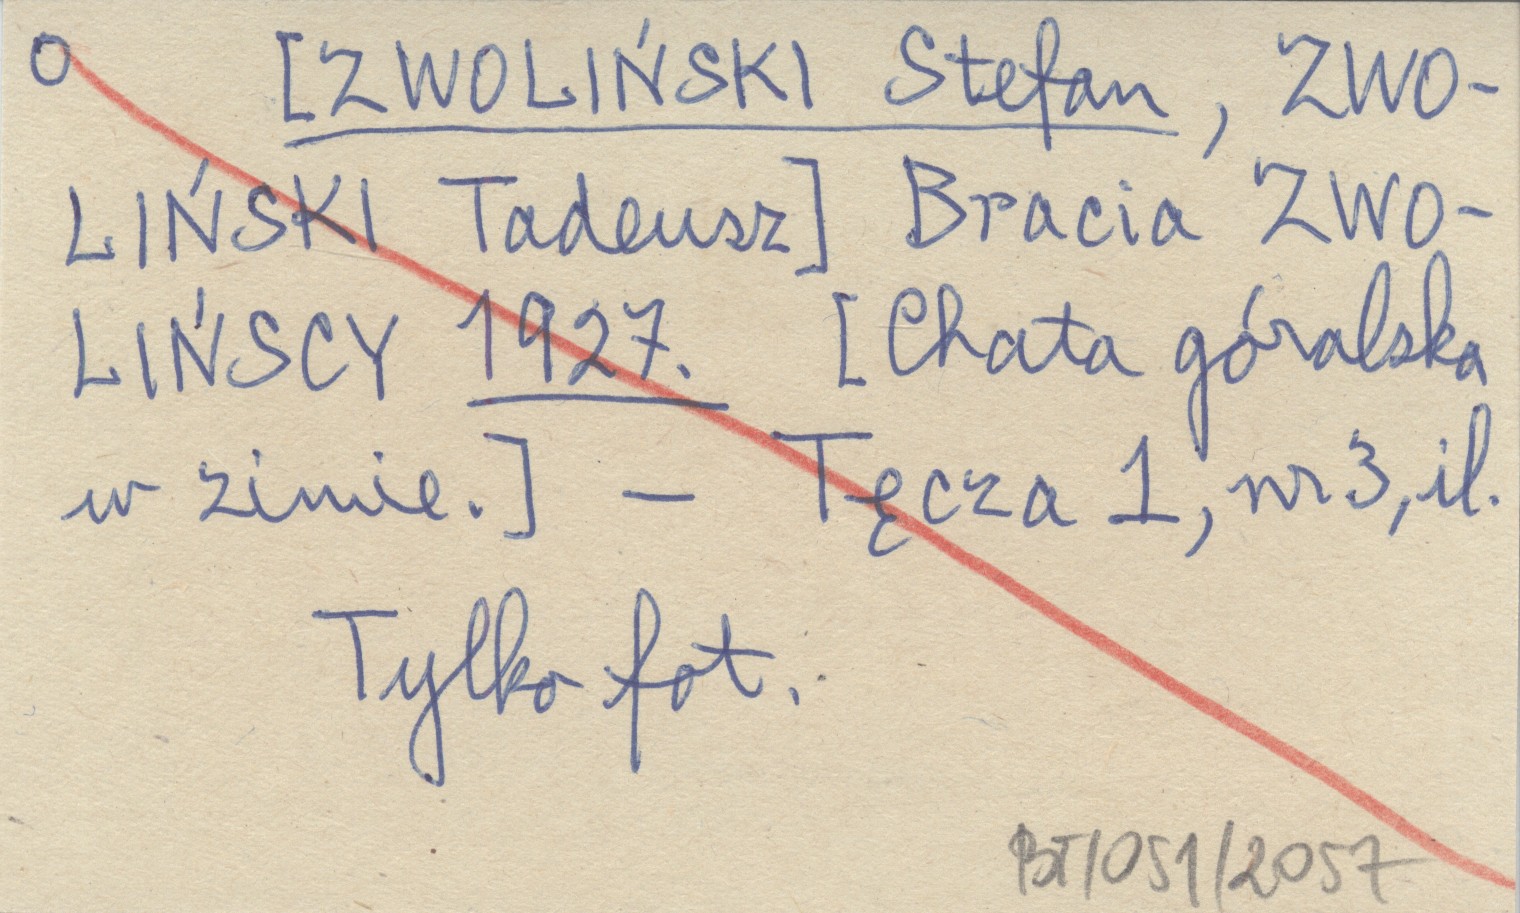 O [ZWOLIŃSKI Stefan, ZWO-
LIŃSKI Tadeusz] Bracia ZWO-
LIŃSCY 1927. [Chata góralska
w zimie.] — Tęcza 1, nr 3, il.
Tylko fot.
BT/051/2057